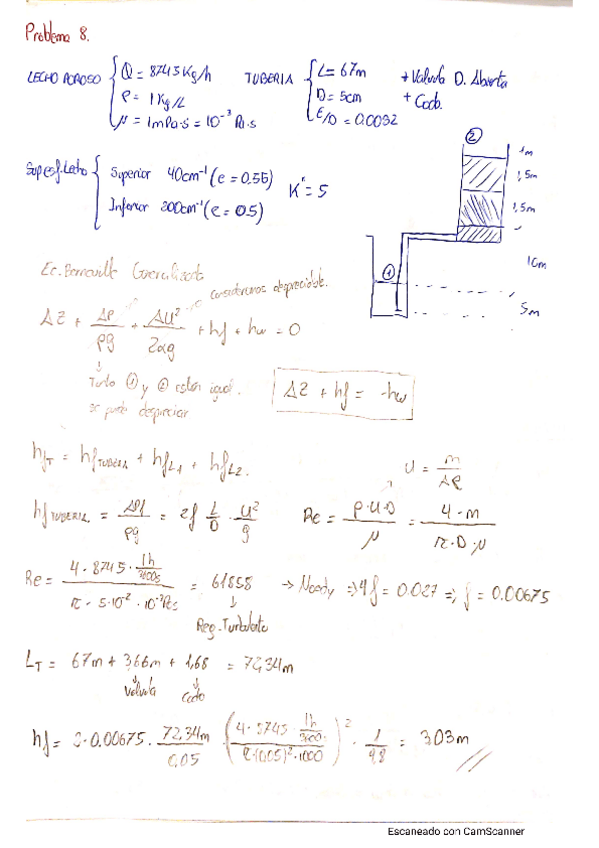 Problema 8.
LECHO POROSO { Q = 8745 Kg/h
ρ = 1 Kg/L
μ = 1 mPa·s = 10⁻³ Pa·s
TUBERIA { L = 67m
D = 5cm
ε/D = 0.0032
+ Valvula D. Abierta
+ Codo.
Superf. Lecho { Superior 40cm⁻¹ (e = 0.55)
Inferior 200cm⁻¹ (e = 0.5)
K" = 5
②
1m
1,5m
1,5m
①
10m
5m
Ec. Bernouille Generalizada
consideramos despreciable.
ΔZ + ΔP/ρg + ΔU²/2αg + hf + hw = 0
Tanto ① y ② estan igual.
se puede despreciar
ΔZ + hf = -hw
hf_T = hf TUBERIA + hf L1 + hf L2.
U = m/Aρ
hf TUBERIA = ΔPf/ρg = 2f L/D · U²/g
Re = ρ·U·D/μ = 4·m/π·D·μ
Re = 4·8745·1h/3600s / π·5·10⁻²·10⁻³Pas = 61858 → Moody ⇒ 4f = 0.027 ⇒ f = 0.00675
Reg. Turbulento
L_T = 67m + 3,66m + 1,68 = 72,34m
Valvula Codo
hf = 2·0.00675 · 72,34m/0,05 · (4·8745·1h/3600 / π(0,05)²·1000)² · 1/9,8 = 3,03m
Escaneado con CamScanner